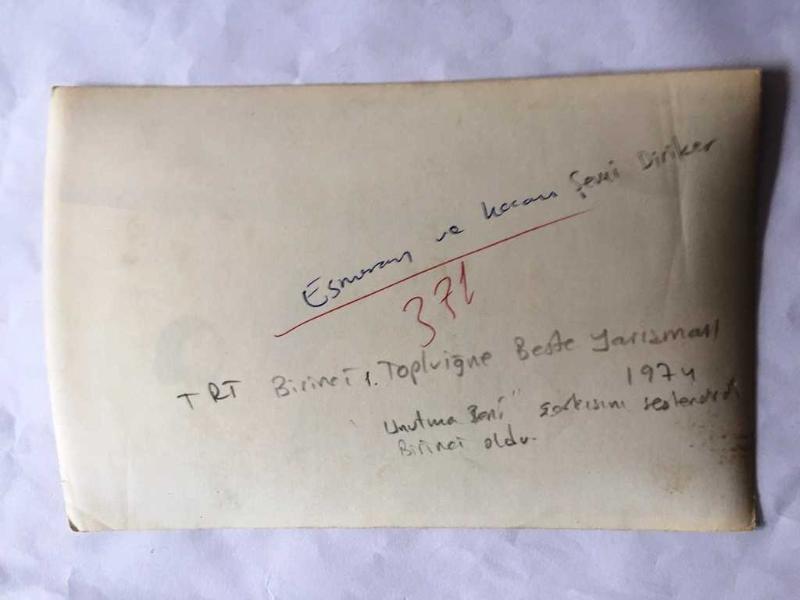 Esmeray ve kocası Şemi Diriker
371
TRT Birinci 1. Topluiğne Beste Yarışması
1974
"Unutma Beni" şarkısını seslendirdi
Birinci oldu.